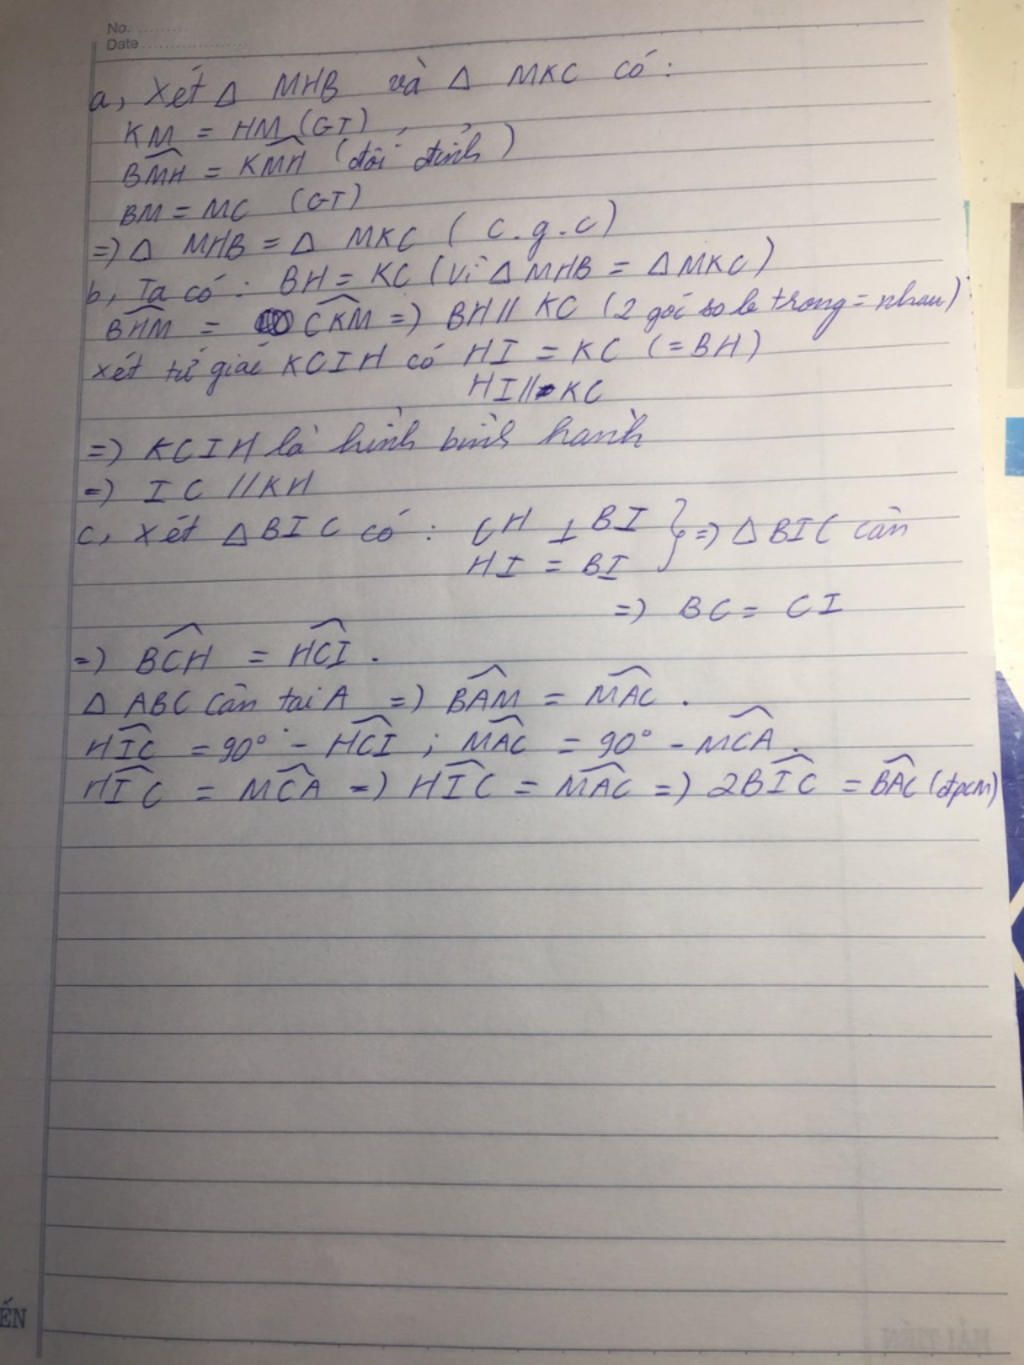 No. ............
Date ........................
a, Xét Δ MHB và Δ MKC có :
KM = HM (GT)
BM̂H = KM̂H (đối đỉnh)
BM = MC (GT)
=) Δ MHB = Δ MKC ( c.g.c)
b, Ta có : BH = KC (Vì Δ MHB = Δ MKC)
BĤM = CK̂M =) BH // KC (2 góc so le trong = nhau)
xét tứ giác KCIH có HI = KC (= BH)
HI // KC
=) KCIH là hình bình hành
=) IC // KH
c, Xét Δ BIC có : CH ⊥ BI } =) Δ BIC cân
HI = BI
=) BC = CI
=) BĈH = HĈI .
Δ ABC cân tại A =) BÂM = MÂC .
HÎC = 90° - HĈI ; MÂC = 90° - MĈA .
HÎC = MĈA =) HÎC = MÂC =) 2BÎC = BÂC (đpcm)
ẾN
HẢI TIẾN